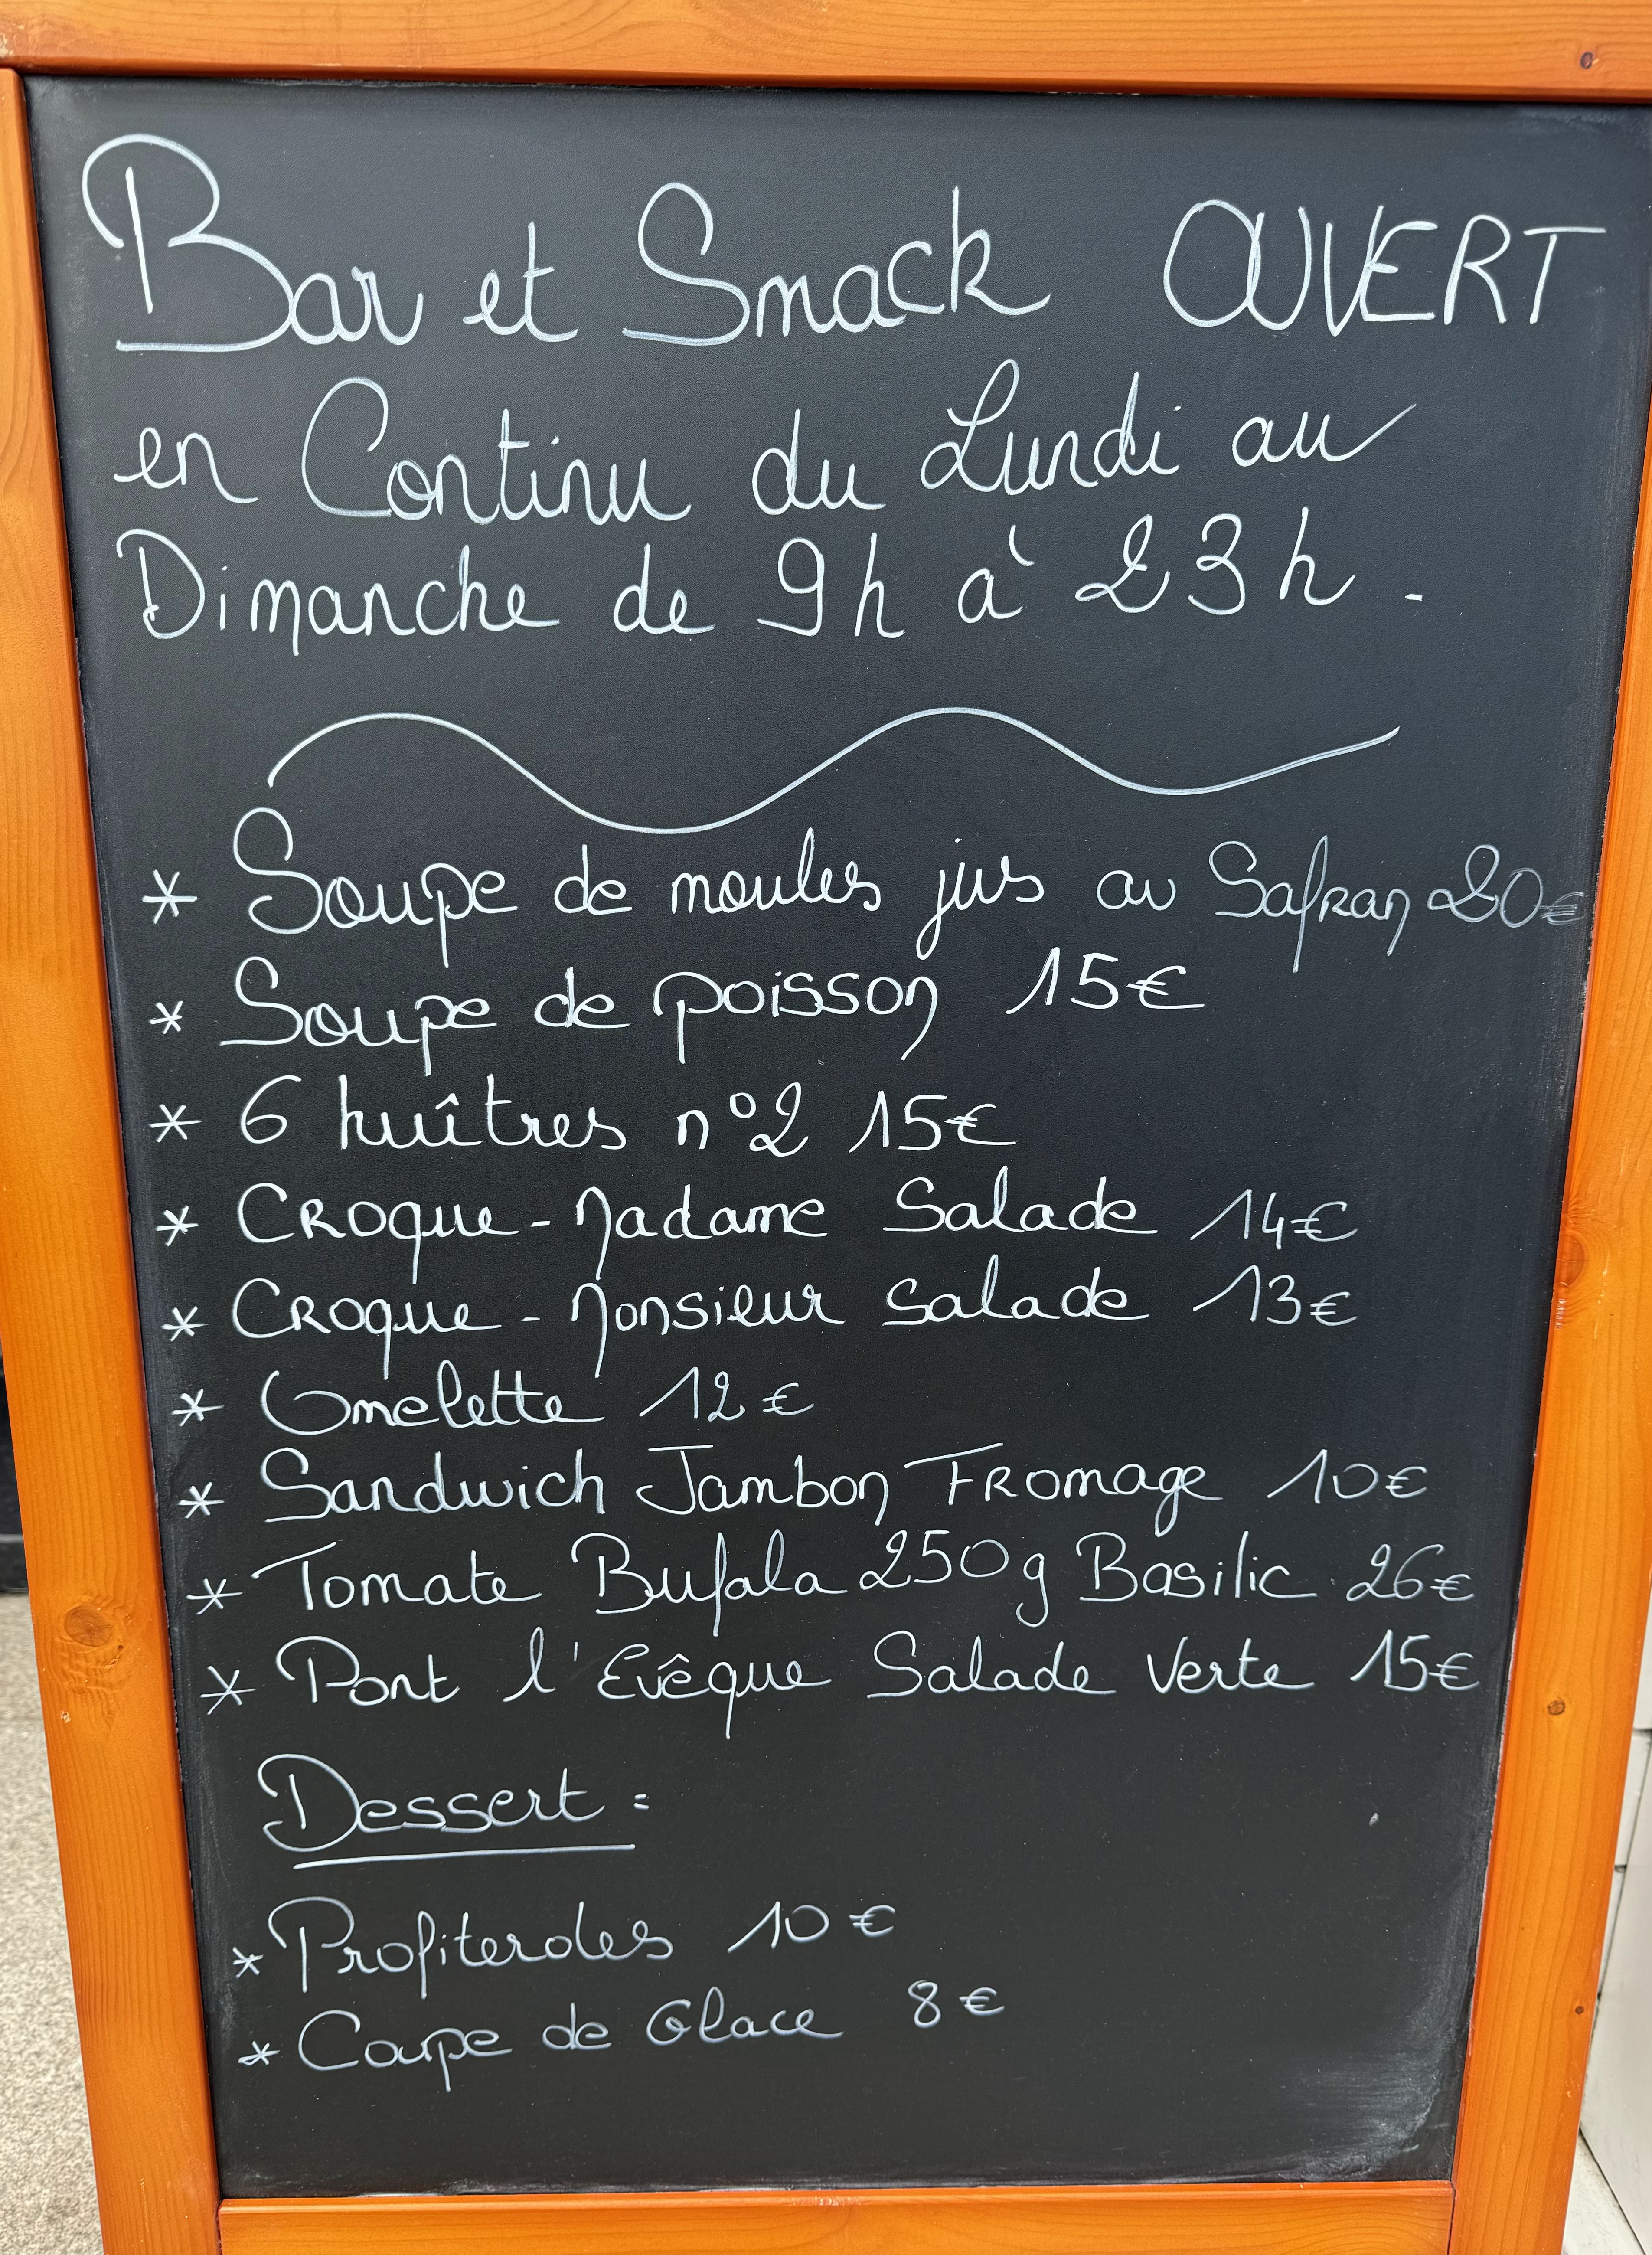 Bar et Snack OUVERT
en Continu du Lundi au
Dimanche de 9h à 23h.
* Soupe de moules jus au Safran 20€
* Soupe de poisson 15€
* 6 huîtres n°2 15€
* Croque-Madame Salade 14€
* Croque-Monsieur Salade 13€
* Omelette 12€
* Sandwich Jambon Fromage 10€
* Tomate Bufala 250g Basilic 26€
* Pont l'Evêque Salade Verte 15€
Dessert :
* Profiteroles 10€
* Coupe de Glace 8€